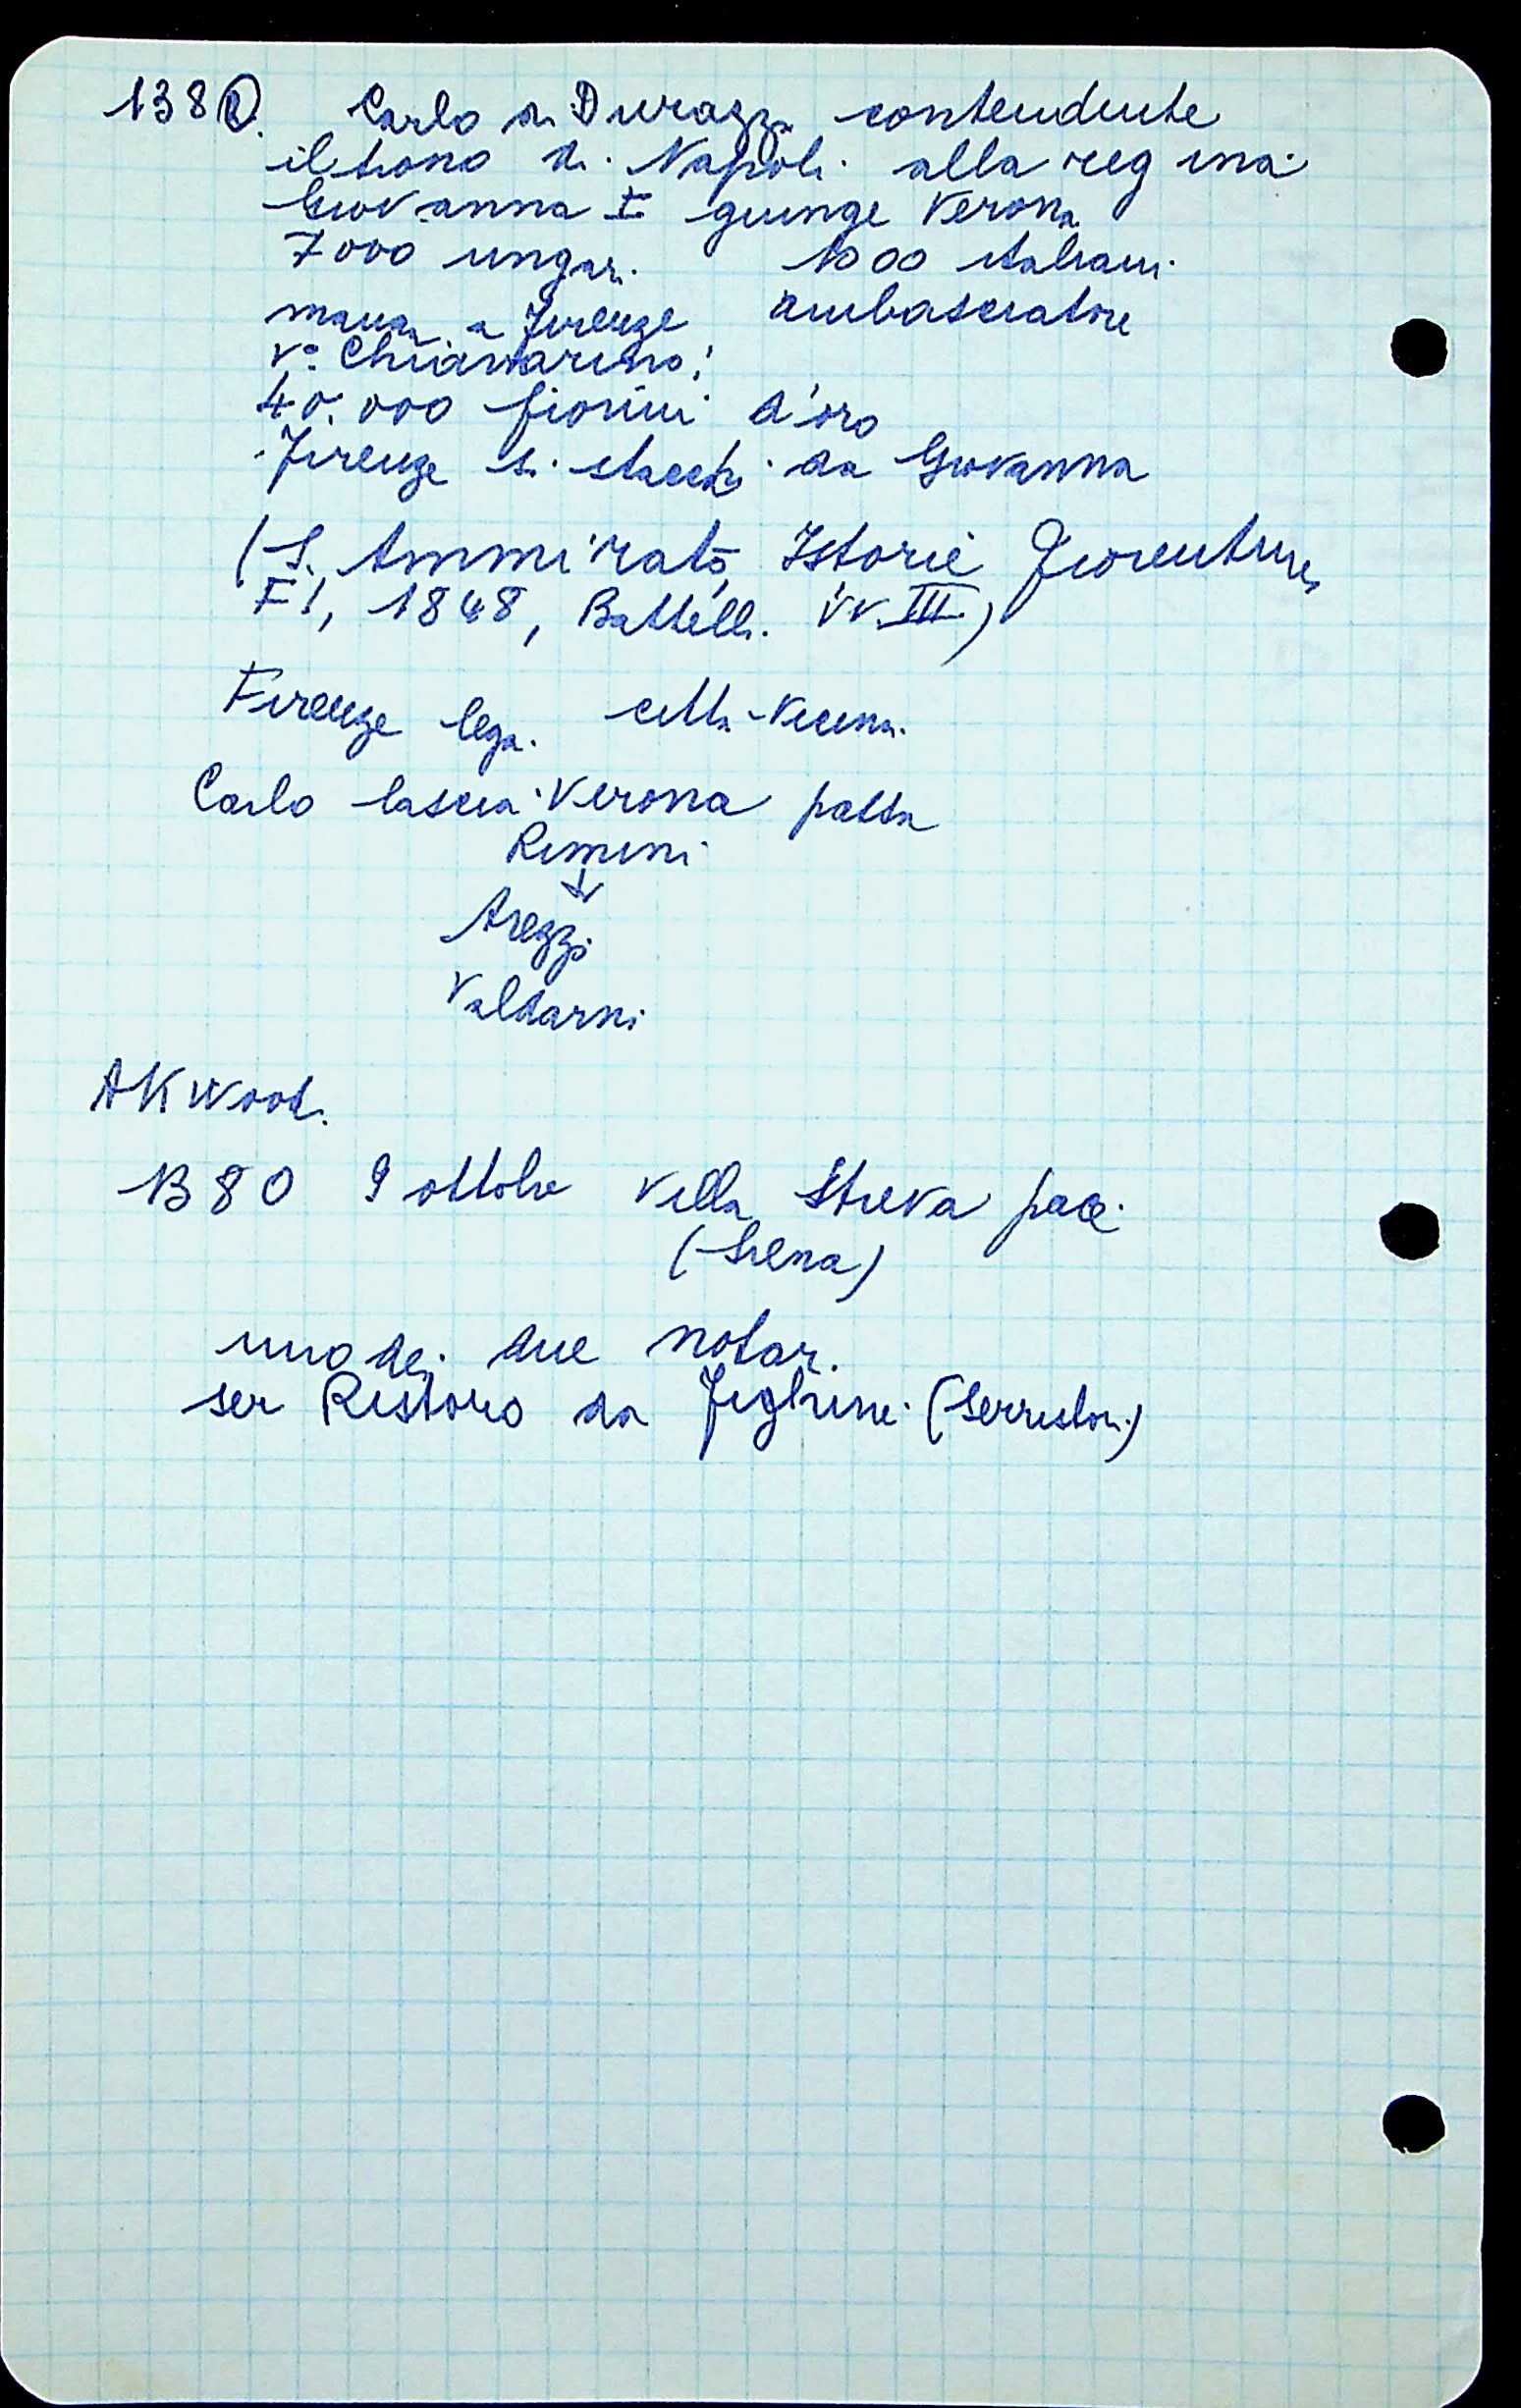 1380. Carlo di Durazzo contendente
il trono di Napoli alla regina
Giovanna I giunge Verona
7000 ungari 1000 italiani
manda a Firenze ambasciatore
40.000 fiorini d'oro
Firenze si stacchi da Giovanna
(S. Ammirato, Istorie Fiorentine,
FI, 1848, Battelli. VV. III)
Firenze lega città vicina
Carlo lascia Verona passa
Rimini
↓
Arezzo
Valdarno
AKwood.
1380 9 ottobre villa Streva pace
(Siena)
uno dei due notai
ser Ristoro da Fighine (Serristori)